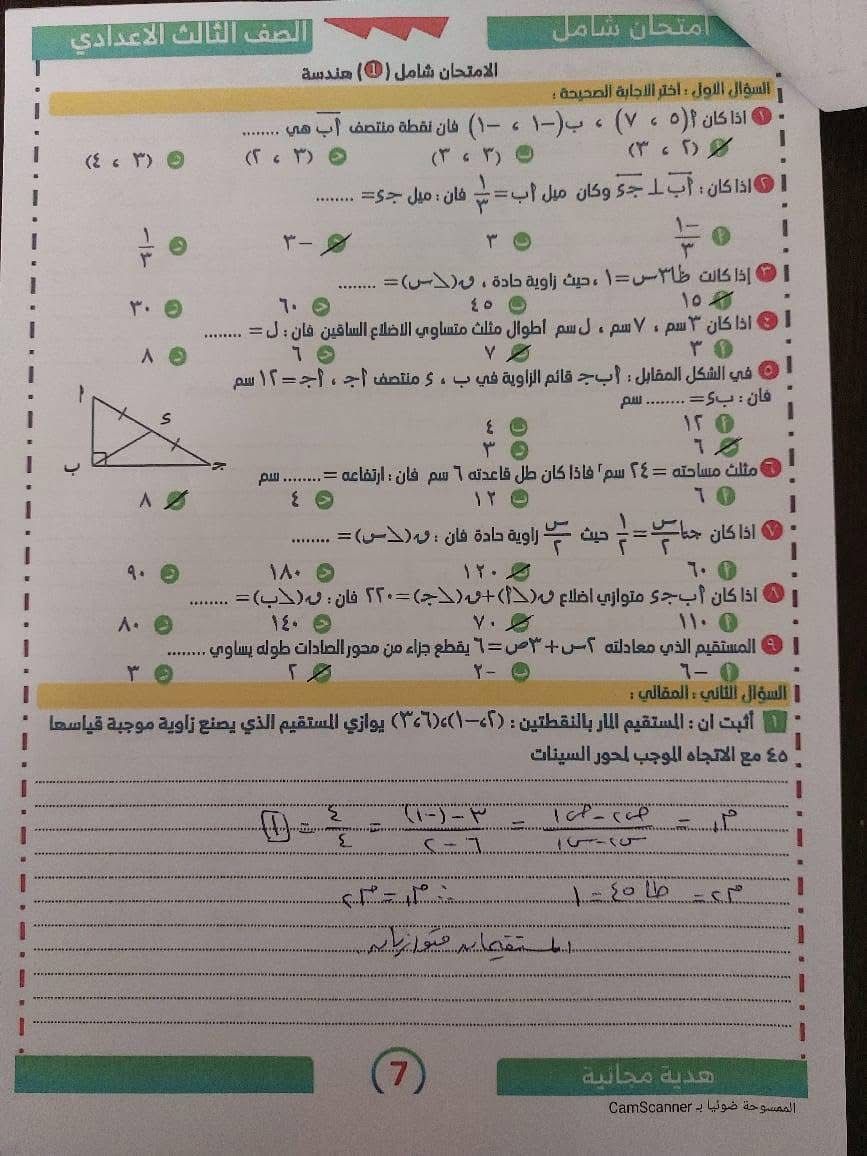 امتحان شامل
الصف الثالث الاعدادي
الامتحان شامل (1) هندسة
السؤال الاول : أختر الاجابة الصحيحة :
١ اذا كان أ(٥ ، ٧) ، ب(-١ ، -١) فان نقطة منتصف أب هي ........
أ (٢ ، ٣) ب (٣ ، ٣) ج (٣ ، ٢) د (٣ ، ٤)
٢ اذا كان : أب ⊥ جـ ء وكان ميل أب = ١/٣ فان : ميل جـ ء = ........
أ -١/٣ ب ٣ ج -٣ د ١/٣
٣ إذا كانت ظا٣س = ١ ، حيث زاوية حادة ، ق(∠س) = ........
أ ١٥ ب ٤٥ ج ٦٠ د ٣٠
٤ اذا كان ٣سم ، ٧سم ، ل سم أطوال مثلث متساوي الاضلاع الساقين فان : ل = ........
أ ٣ ب ٧ ج ٦ د ٨
٥ في الشكل المقابل : أ ب جـ قائم الزاوية في ب ، ء منتصف أجـ ، أجـ = ١٢ سم
فان : ب ء = ........ سم
أ ١٢ ب ٤
ج ٦ د ٣
أ
ء
ب
جـ
٦ مثلث مساحته = ٢٤ سم٢ فاذا كان طل قاعدته ٦ سم فان : ارتفاعه = ........ سم
أ ٦ ب ١٢ ج ٤ د ٨
٧ اذا كان جتا س/٢ = ١/٢ حيث س/٢ زاوية حادة فان : ق(∠س) = ........
أ ٦٠ ب ١٢٠ ج ١٨٠ د ٩٠
٨ اذا كان أ ب جـ ء متوازي اضلاع ق(∠أ)+ق(∠جـ)=٢٢٠ فان : ق(∠ب) = ........
أ ١١٠ ب ٧٠ ج ١٤٠ د ٨٠
٩ المستقيم الذي معادلته ٢س+٣ص=٦ يقطع جزاء من محور الصادات طوله يساوي ........
أ -٦ ب -٢ ج ٢ د ٣
السؤال الثاني : المقالي :
١ أثبت ان : المستقيم المار بالنقطتين : (٢،-١)،(٦،٣) يوازي المستقيم الذي يصنع زاوية موجبة قياسها
٤٥ مع الاتجاه الموجب لمحور السينات
م١ = ص٢-ص١/س٢-س١ = ٣-(-١)/٦-٢ = ٤/٤ = ١
م٢ = ظا ٤٥ = ١ ∴ م١ = م٢
المستقيمان متوازيان
هدية مجانية
7
الممسوحة ضوئيا بـ CamScanner